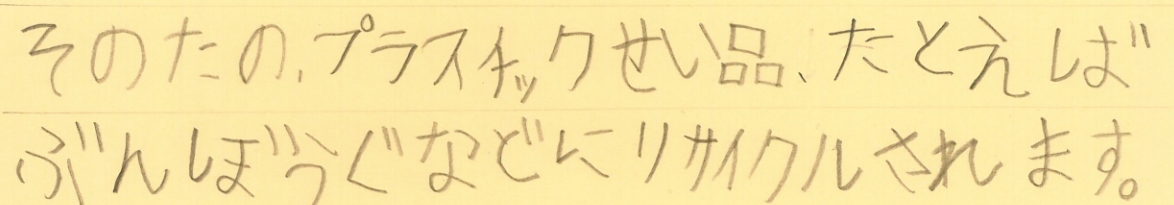 そのたの、プラスチックせい品、たとえば
ぶんぼうぐなどにリサイクルされます。